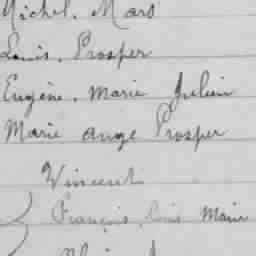 Michel. Mars
Louis. Prosper
Eugène. Marie Julien
Marie Ange Prosper
Vincent
François Louis Marie